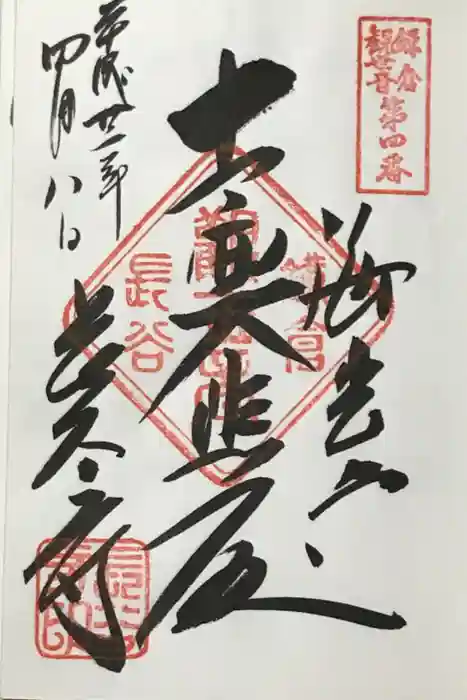 鎌倉
観世音
第四番
海光山
十一面大悲殿
鎌倉
長谷
平成廿一年
四月八日
長谷寺